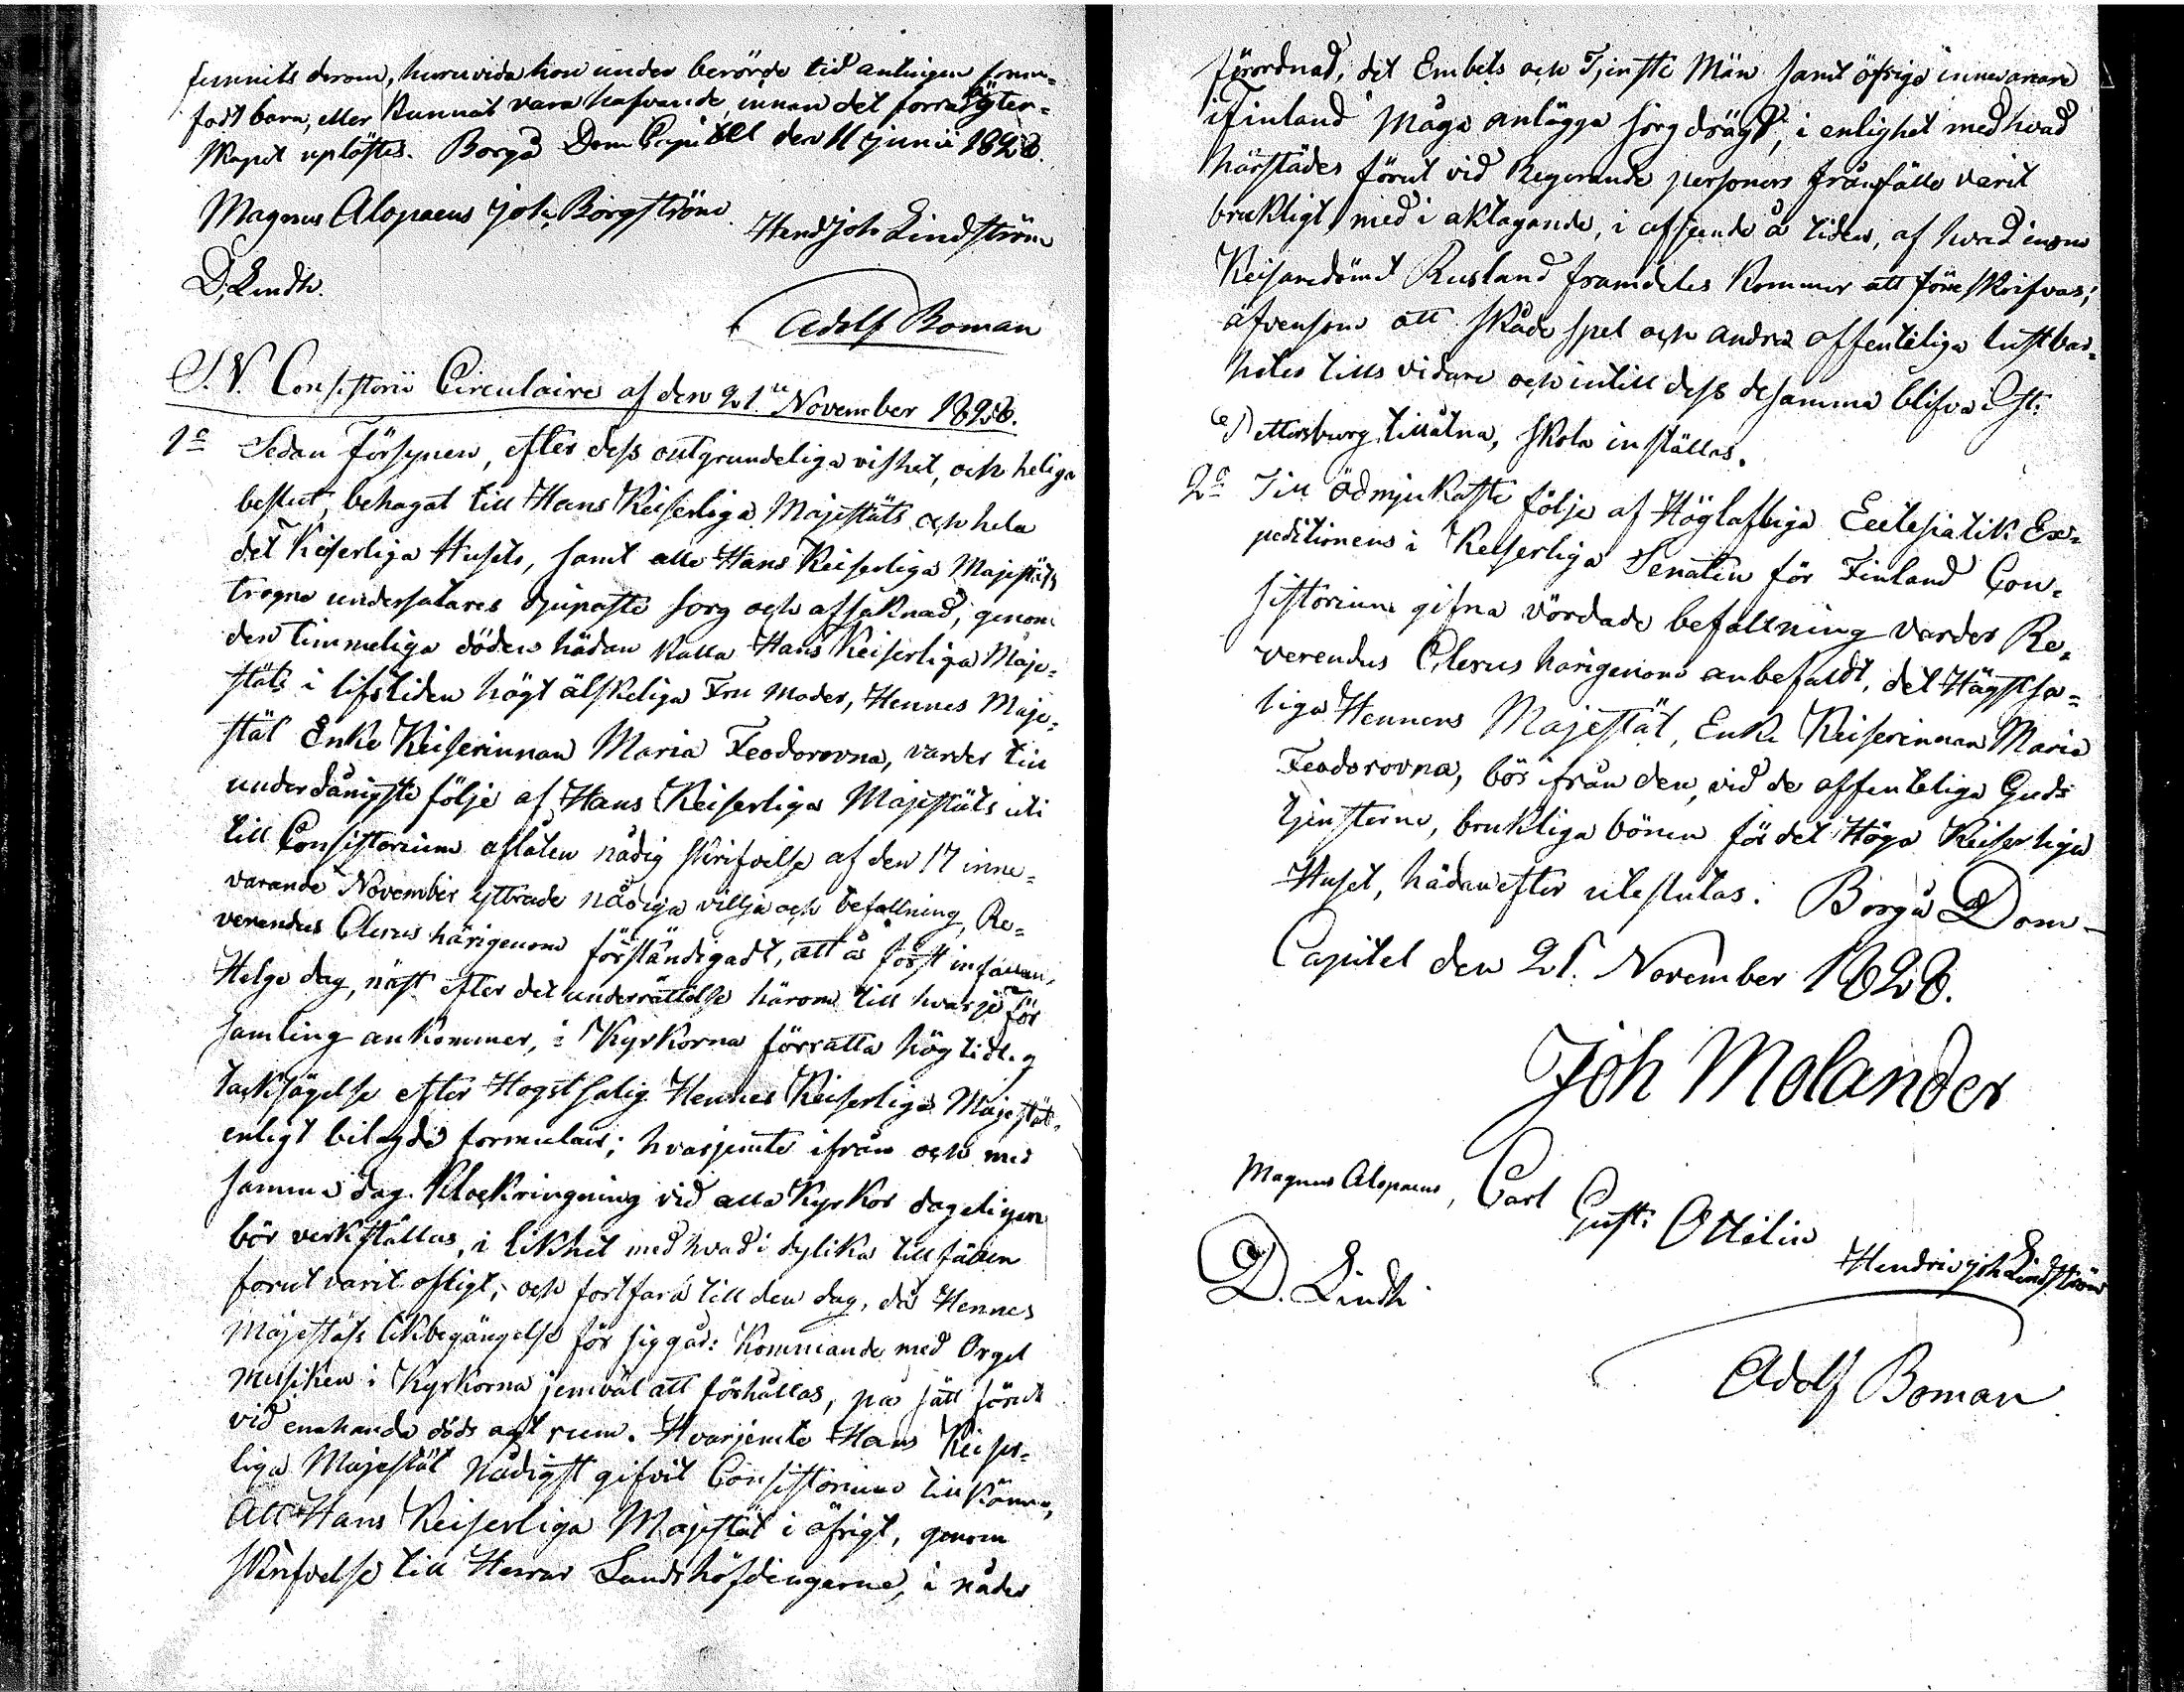 funnits derom, huruvida hon under berörde tid antingen fram-
födt barn, eller kunnat vara hafvande, innan det förra ägten-
skapet uplöstes. Borgå Dom Capitel den 11 Junii 1828.
Magnus Alopaeus Joh. Borgström. Hend Joh Lindström
D. Lindh.
Adolf Boman
S. N. Consistorii Circulaire af den 21.ta November 1828.
1o Sedan Försynen, efter dess outgrundeliga vishet, och heliga
beslut, behagat till Hans Keiserliga Majestäts och hela
det Keiserliga Husets, samt alla Hans Keiserliga Majestäts
trogna undersåtares djupaste sorg och afsaknad, genom
den timmeliga döden hädan kalla Hans Keiserliga Maje-
stäts i lifstiden högt älskeliga Fru Moder, Hennes Maje-
stät Enke Keiserinnan Maria Feodorovna, varder till
underdånigste följe af Hans Keiserliga Majestäts uti
till Consistorium aflåten nådig skrifvelse af den 17 inne-
varande November yttrade nådiga vilja och befallning, Re-
verendus Clerus härigenom förständigadt, att å först infallan-
Helge dag, näst efter det underrättelse härom till hvarje För
samling ankommer, i Kyrkorna förrätta högtidlig
tacksägelse efter Högstsalig Hennes Keiserliga Majestät
enligt bilagde formulair; hvarjemte ifrån och med
samma dag Klockringning vid alla Kyrkor dageligen
bör verkställas, i likhet med hvad i dylika tillfällen
förut varit öfligt, och fortfara till den dag, då Hennes
Majestäts likbegängelse för sig går: kommande med Orgel
musiken i Kyrkorna jemväl att förhållas, på sätt förut
vid enahanda döds ägt rum. Hvarjemte Hans Keiser-
liga Majestät Nådigst gifvit Consistorium tillkänna,
Att Hans Keiserliga Majestät i öfrigt, genom
skrifvelse till Herrar Landshöfdingarne, i nåder
förordnad, det Embets och Tjenste Män samt öfrige innevånare
i Finland måga anlägga sorgdrägt, i enlighet med hvad
härstädes förut vid Regerande personers frånfälle varit
brukligt med i akttagande, i afseende å tiden, af hvad inom
Keisaredömet Rusland framdeles kommer att föreskrifvas;
äfvensom att skåde spel och andra offenteliga lustbar-
heter tills vidare och intill dess desamma blifva i St:
Pettersburg tillåtna, skola inställas.
2o Till ödmjukaste följe af Höglofliga Ecclesiastik Ex-
peditionens i Keiserliga Senaten för Finland Con-
sistorium gifna vördade befallning varder Re-
verendus Clerus härigenom anbefaldt, det Högstsa-
liga Hennes Majestät, Enke Keiserinnan Maria
Feodorovna, bör ifrån den, vid de offenteliga Guds
tjensterne, brukliga bönen för det Höga Keiserliga
Huset, hädanefter uteslutas. Borgå Dom-
Capitel den 21. November 1828.
Joh Molander
Magnus Alopaeus, Carl Gust: Ottelin
D. Lindh Hendric Joh Lindström
Adolf Boman